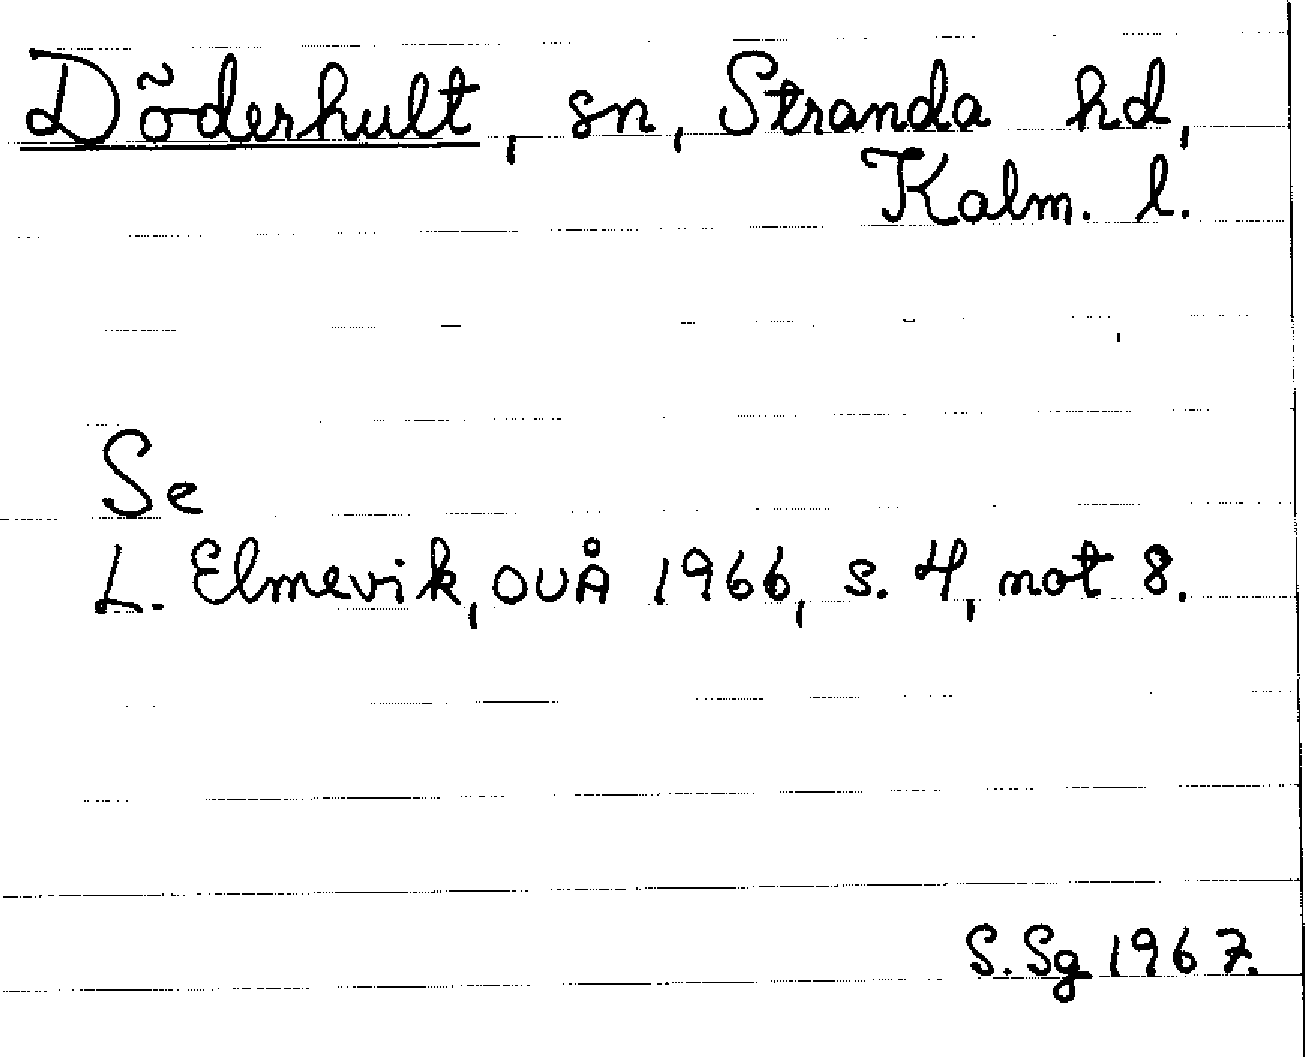 Döderhult, sn, Stranda hd,
Kalm. l.
Se
L. Elmevik, OUÅ 1966, s. 4, not 8.
S. Sg 1967.